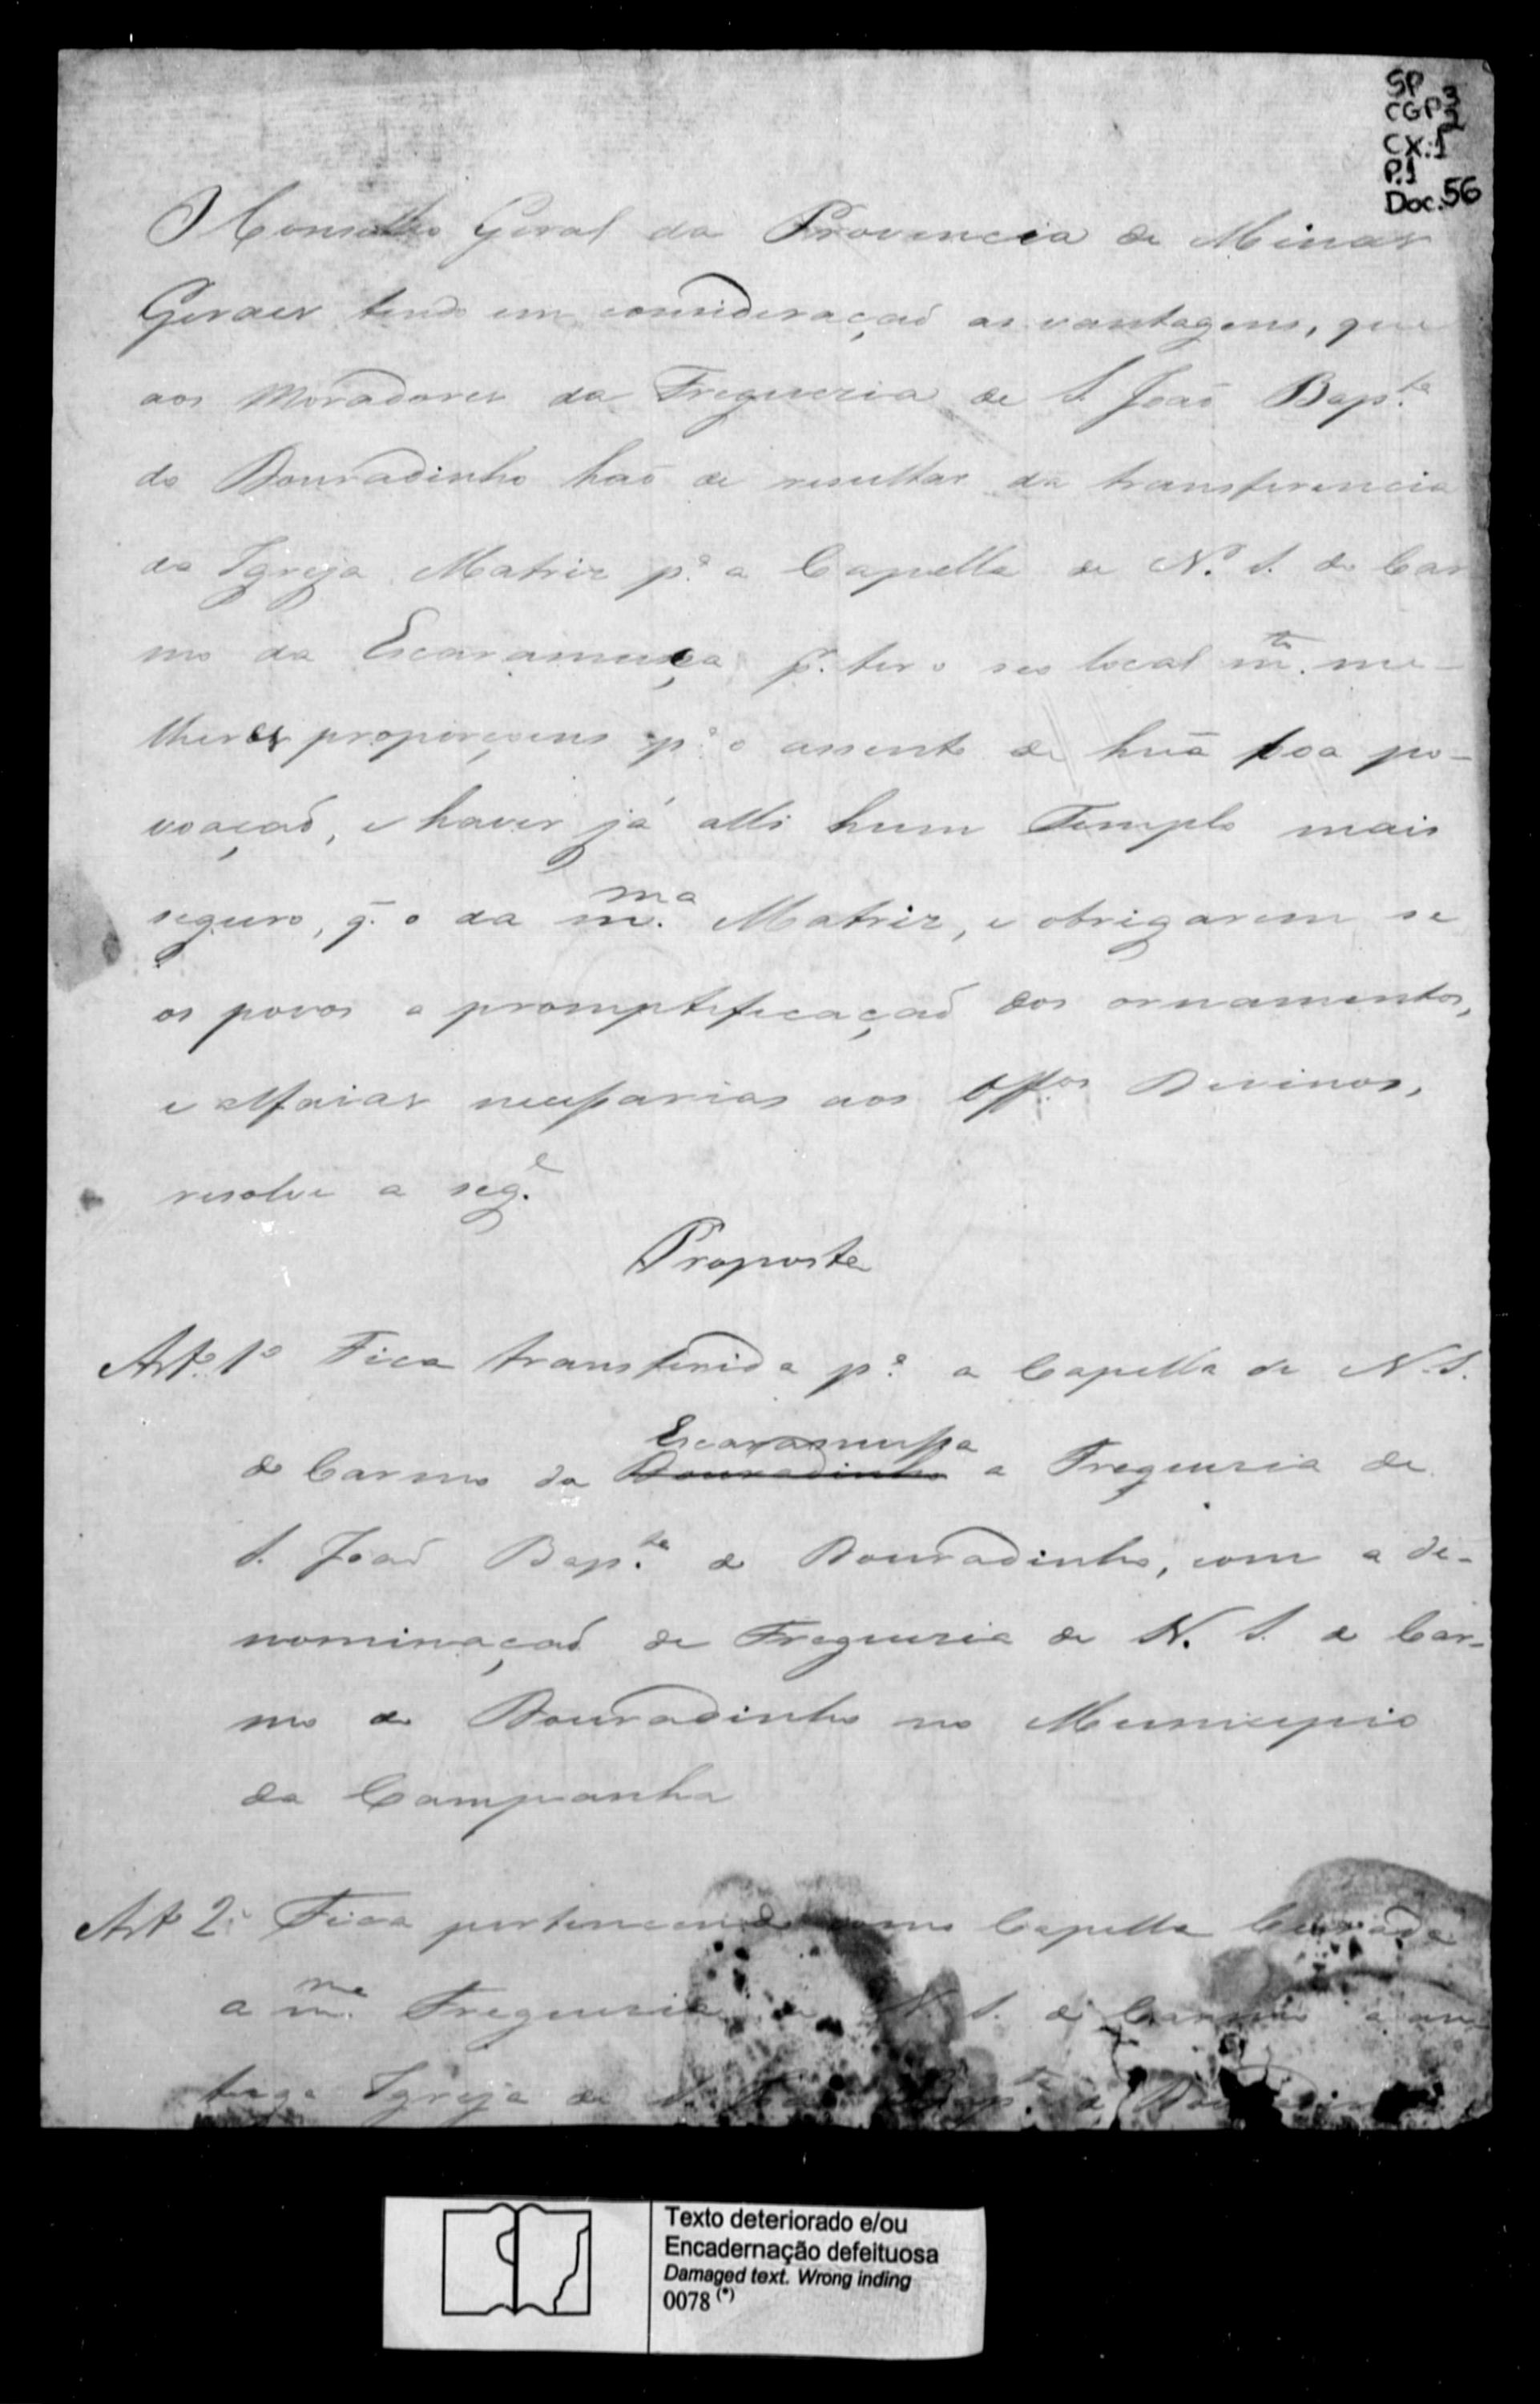 SP
CGP 3
2
CX:1
P.1
Doc.56
O Conselho Geral da Provincia de Minas
Geraes tendo em consideraçaõ as vantagens, que
aos Moradores da Freguezia de S. Joaõ Bap.ta
do Douradinho haõ de resultar da transferencia
da Igreja Matriz p.a a Capella de N. S. do Car
mo da Escaramuça p.r ter o seo local m.to me-
lhores proporçoens p.a o assento de huã boa po-
voaçaõ, e haver já alli hum Templo mais
seguro, q. o da m.ma Matriz, e obrigarem se
os povos a promptificaçaõ dos ornamentos,
e alfaias necessarias aos Off.os Divinos,
resolve a seg.e
Proposta
Art.o 1o Fica transferida p.a a Capella de N. S.
Escaramussa
do Carmo da Douradinho a Freguesia de
S. Joaõ Bap.ta do Douradinho, com a de-
nominaçaõ de Freguesia de N. S. do Car-
mo do Douradinho no Municipio
da Campanha
Art.o 2o Fica pertencendo como Capella Curada
a m.ma Freguesia de N. S. do Carmo a an-
tiga Igreja de S. Joaõ Bap.ta do Douradinho
Texto deteriorado e/ou
Encadernação defeituosa
Damaged text. Wrong inding
0078 (*)